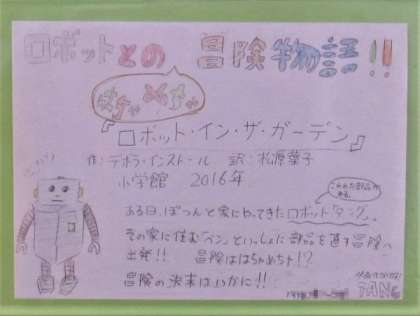 ロボットとの 冒険物語!!
『ロボット・イン・ザ・ガーデン』
作:デボラ・インストール 訳:松原葉子
小学館 2016年
こわれた部品が
ある。
ある日、ぽつんと家にやってきたロボット"タング"。
その家に住む「ベン」といっしょに部品を直す冒険へ
出発!! 冒険ははちゃめちゃ!?
冒険の決末はいかに!!